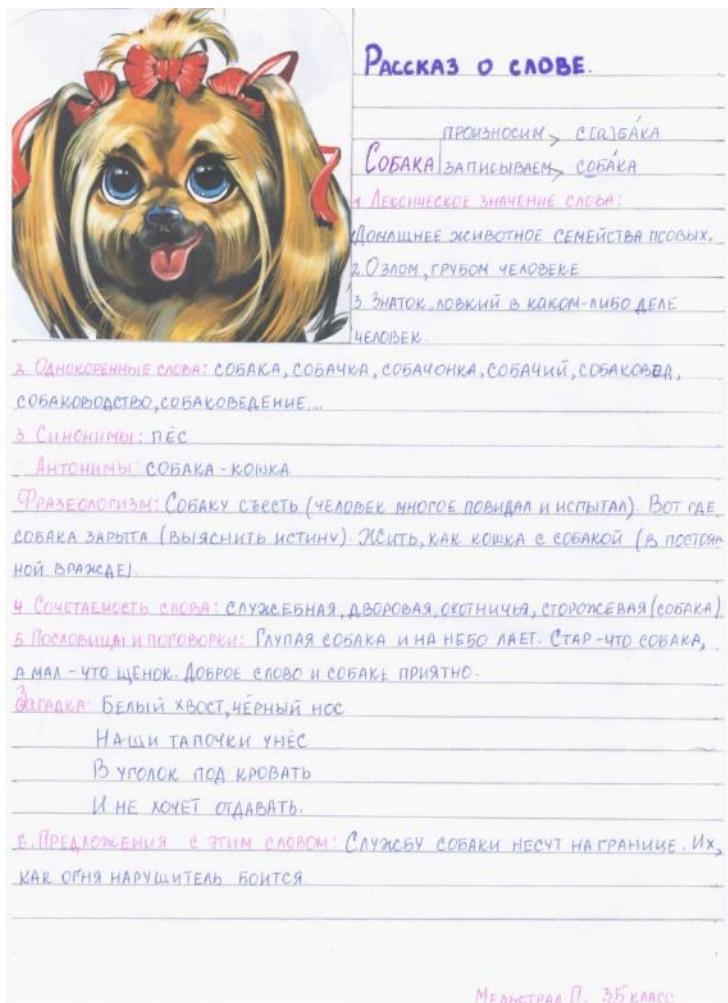 РАССКАЗ О СЛОВЕ.
ПРОИЗНОСИМ > С[А]БА́КА
СОБАКА ЗАПИСЫВАЕМ > СОБА́КА
1 ЛЕКСИЧЕСКОЕ ЗНАЧЕНИЕ СЛОВА:
ДОМАШНЕЕ ЖИВОТНОЕ СЕМЕЙСТВА ПСОВЫХ.
2. О ЗЛОМ, ГРУБОМ ЧЕЛОВЕКЕ
3. ЗНАТОК, ЛОВКИЙ В КАКОМ-ЛИБО ДЕЛЕ
ЧЕЛОВЕК.
2 ОДНОКОРЕННЫЕ СЛОВА: СОБАКА, СОБАЧКА, СОБАЧОНКА, СОБАЧИЙ, СОБАКОВЕД,
СОБАКОВОДСТВО, СОБАКОВЕДЕНИЕ...
3 СИНОНИМЫ: ПЁС
АНТОНИМЫ: СОБАКА - КОШКА
ФРАЗЕОЛОГИЗМ: СОБАКУ СЪЕСТЬ (ЧЕЛОВЕК МНОГОЕ ПОВИДАЛ И ИСПЫТАЛ). ВОТ ГДЕ
СОБАКА ЗАРЫТА (ВЫЯСНИТЬ ИСТИНУ). ЖИТЬ, КАК КОШКА С СОБАКОЙ (В ПОСТОЯН
НОЙ ВРАЖДЕ).
4 СОЧЕТАЕМОСТЬ СЛОВА: СЛУЖЕБНАЯ, ДВОРОВАЯ, ОХОТНИЧЬЯ, СТОРОЖЕВАЯ (СОБАКА)
5 ПОСЛОВИЦЫ И ПОГОВОРКИ: ГЛУПАЯ СОБАКА И НА НЕБО ЛАЕТ. СТАР - ЧТО СОБАКА,
А МАЛ - ЧТО ЩЕНОК. ДОБРОЕ СЛОВО И СОБАКЕ ПРИЯТНО.
ЗАГАДКА: БЕЛЫЙ ХВОСТ, ЧЁРНЫЙ НОС
НАШИ ТАПОЧКИ УНЁС
В УГОЛОК ПОД КРОВАТЬ
И НЕ ХОЧЕТ ОТДАВАТЬ.
6. ПРЕДЛОЖЕНИЯ С ЭТИМ СЛОВОМ: СЛУЖБУ СОБАКИ НЕСУТ НА ГРАНИЦЕ. ИХ,
КАК ОГНЯ НАРУШИТЕЛЬ БОИТСЯ
МЕЛЬСТРАЛ П. 3Б КЛАСС